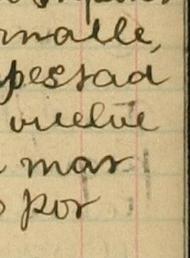 rnalle,
pestad
vuelve
mar
por